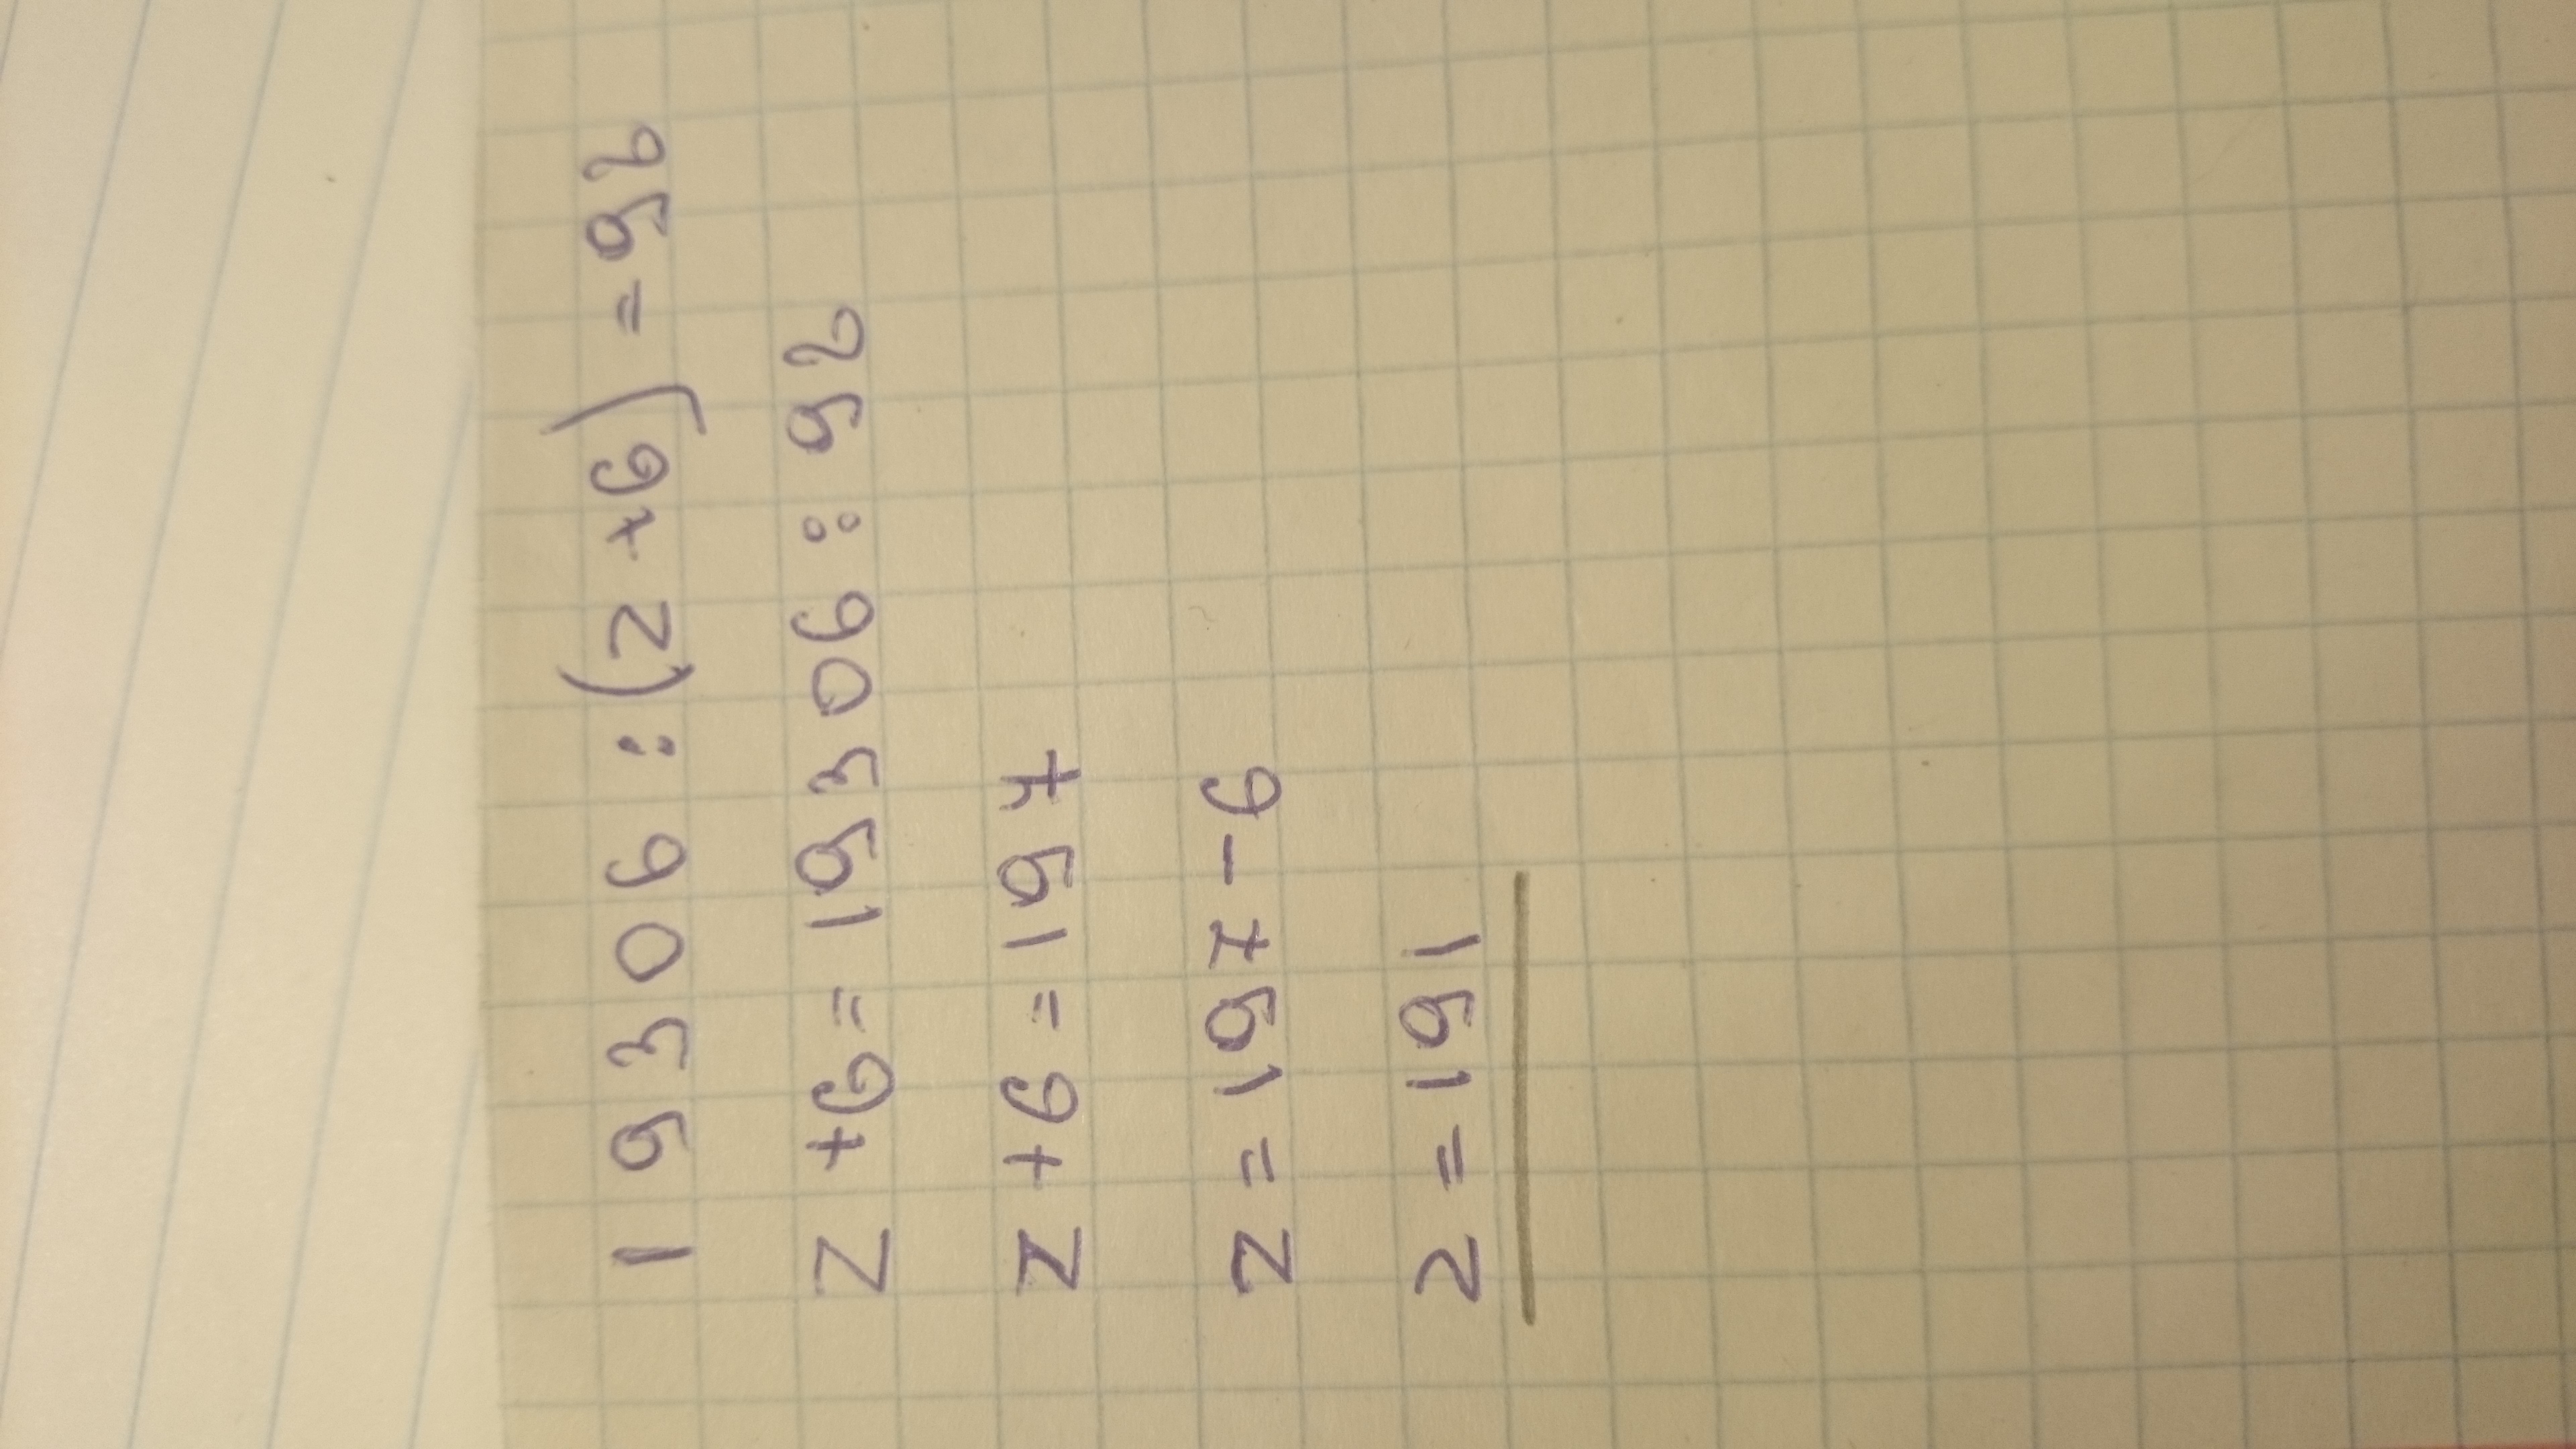 19306 : (z+6) = 98
z+6 = 19306 : 98
z+6 = 197
z = 197-6
z = 191